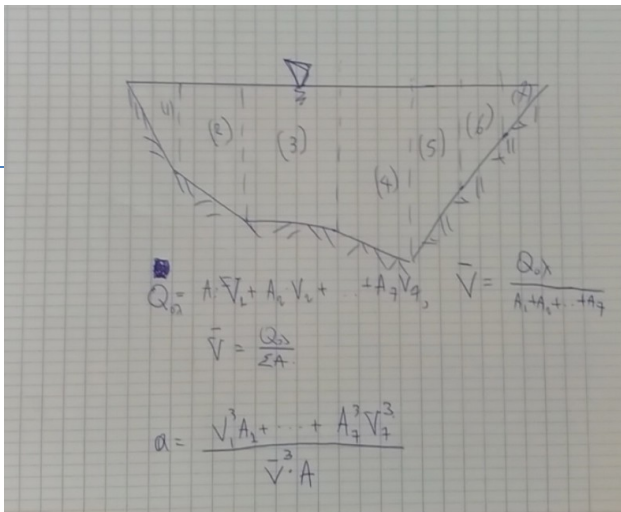 (1) (2) (3) (4) (5) (6) (7)
Qολ = A₁V̄₁ + A₂V₂ + ... + A₇V₇, V̄ = Qολ / A₁+A₂+...+A₇
V̄ = Qολ / ΣA
a = V₁³A₁ + ... + A₇³V₇³ / V̄³·A